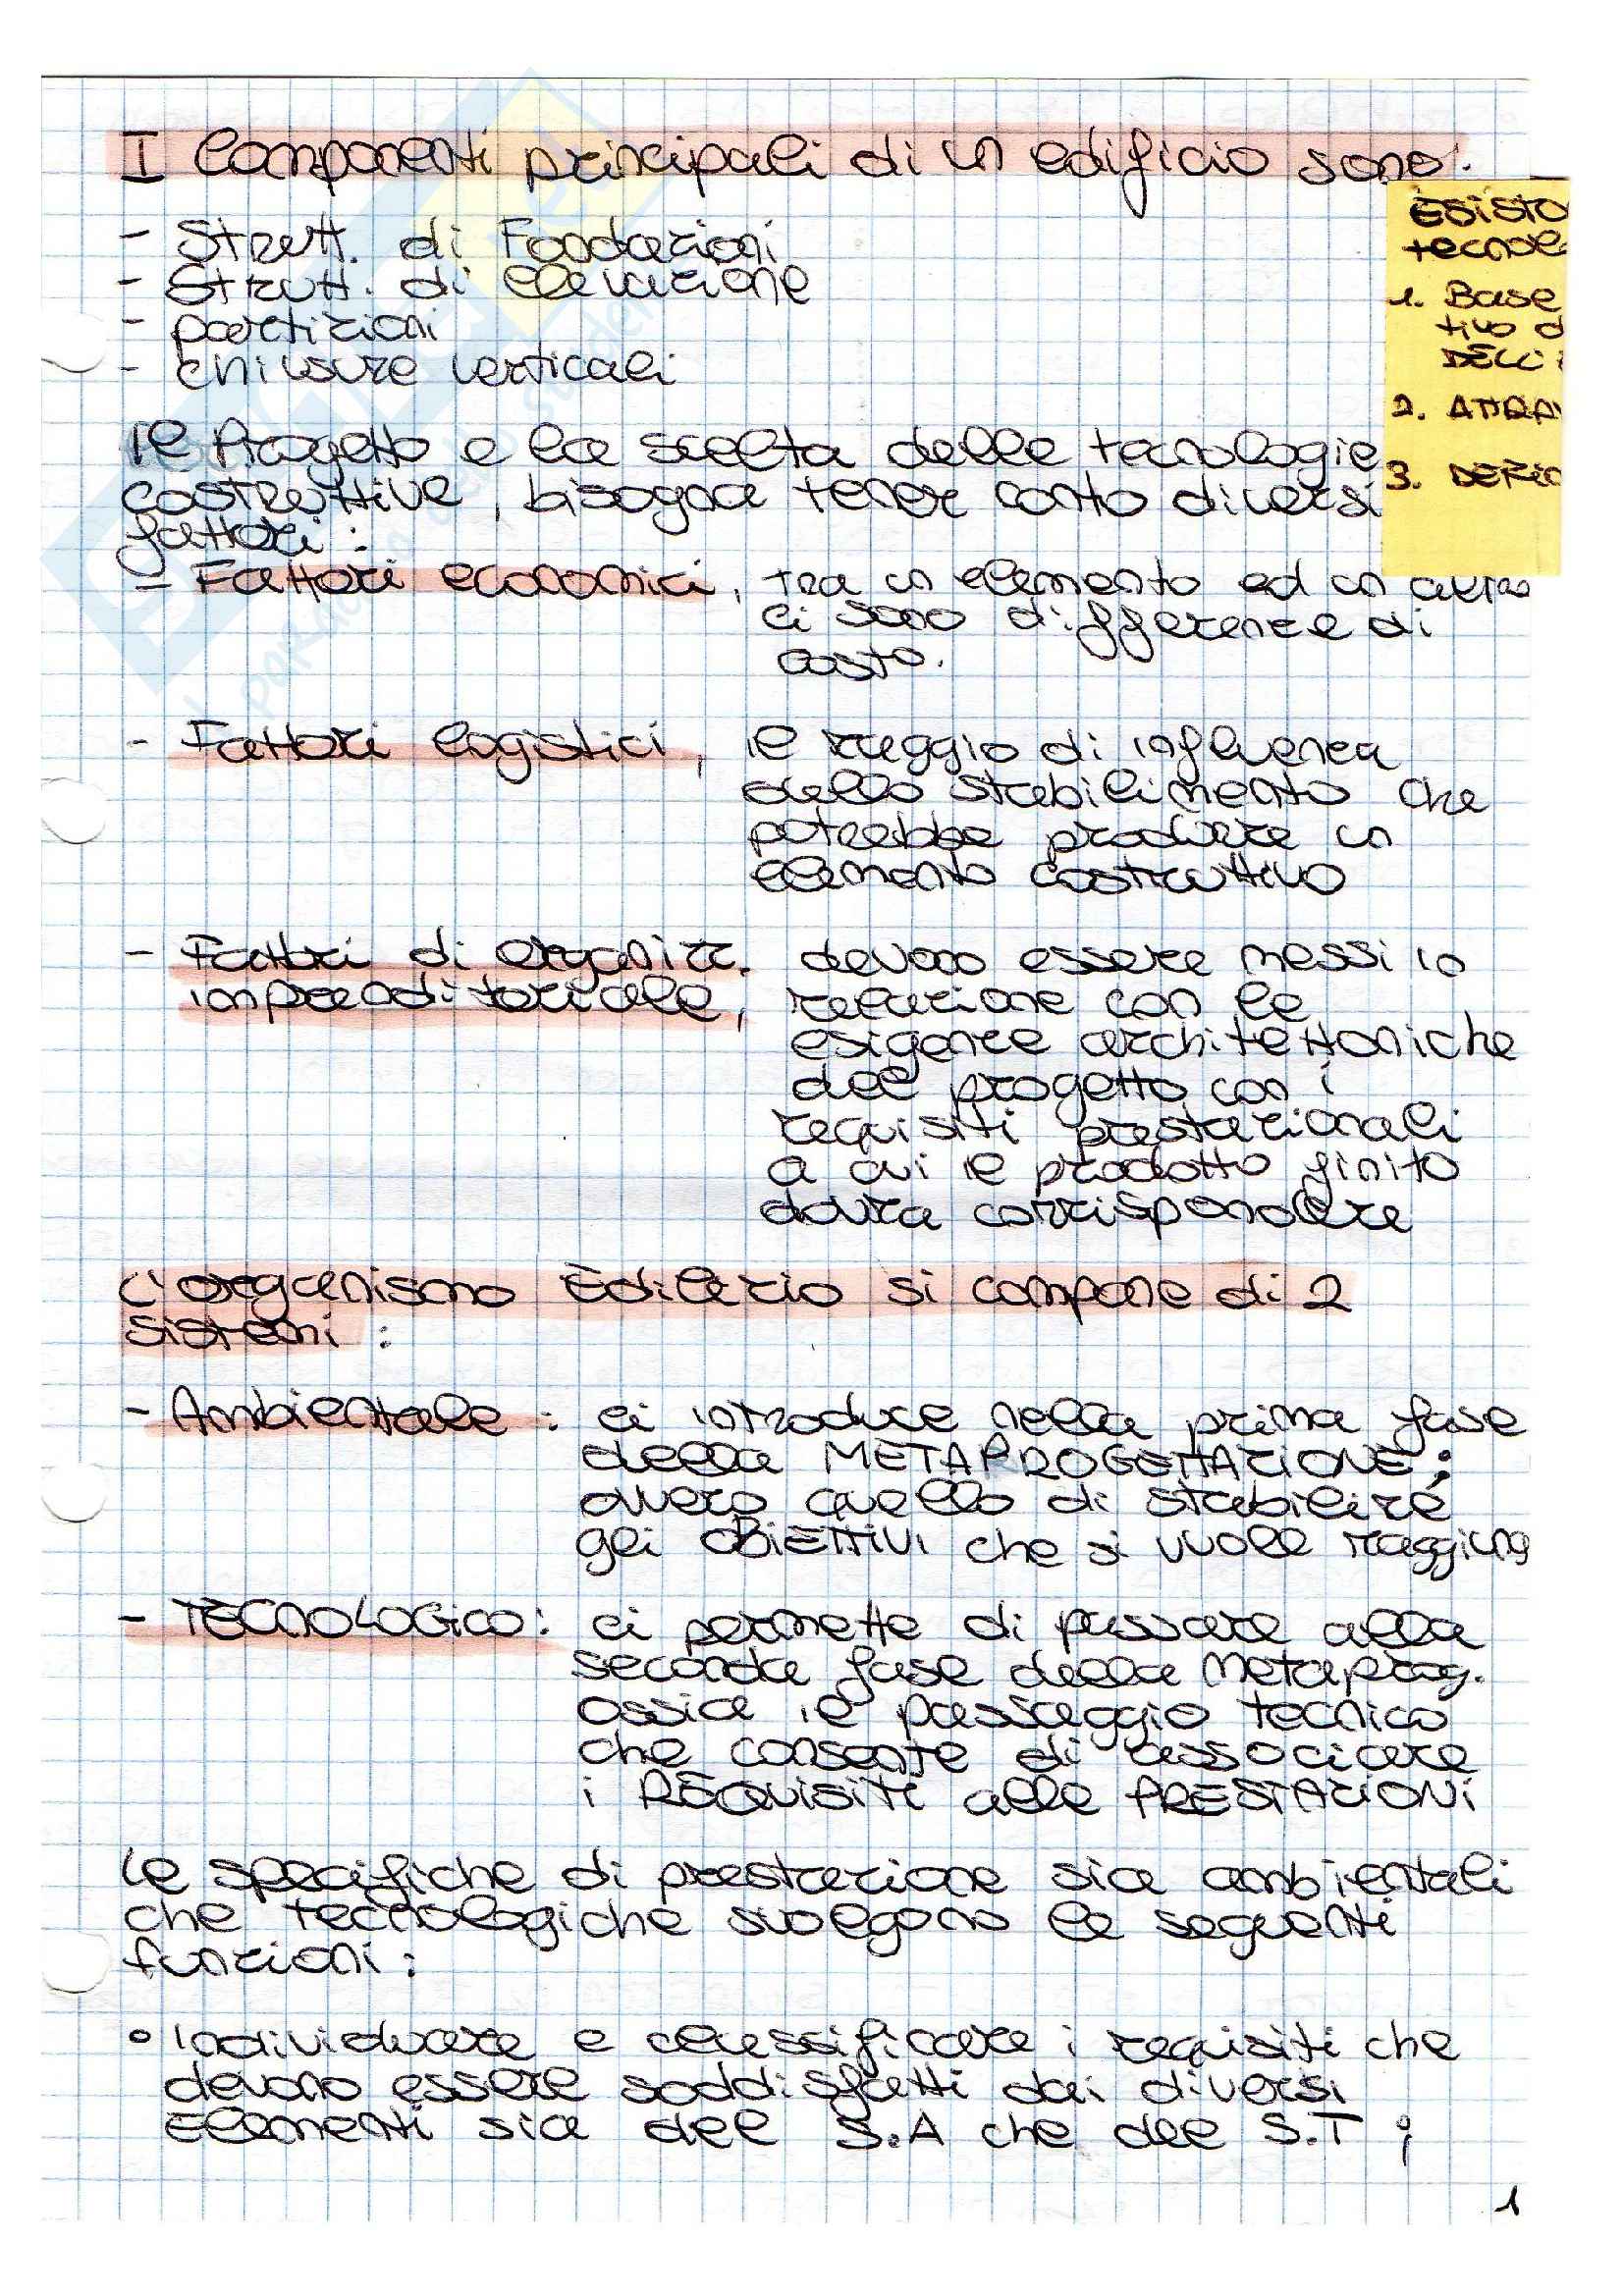 I Componenti principali di un edificio sono:
- Strutt. di Fondazioni
- Strutt. di elevazione
- partizioni
- chiusure verticali
Il Progetto e la scelta delle tecnologie
costruttive, bisogna tener conto diversi
fattori:
- Fattori economici, tra un elemento ed un altro
ci sono differenze di
costo.
- Fattori logistici, il raggio di influenza
dello stabilimento che
potrebbe produrre un
elemento costruttivo
- Fattori di organizz. devono essere messi in
imprenditoriale, relazione con le
esigenze architettoniche
del progetto con i
requisiti prestazionali
a cui il prodotto finito
dovra corrispondere
L'organismo Edilizio si compone di 2
sistemi:
- Ambientale: ci introduce nella prima fase
della METAPROGETTAZIONE;
ovvero quello di stabilire
gli OBIETTIVI che si vuole raggiung
- TECNOLOGICO: ci permette di passare alla
seconda fase della Metaprog.
ossia il passaggio tecnico
che consente di associare
i REQUISITI alle PRESTAZIONI
Le specifiche di prestazione sia ambientali
che tecnologiche svolgono le seguenti
funzioni:
• Individuare e classificare i requisiti che
devono essere soddisfatti dai diversi
Elementi sia del S.A che del S.T;
1
ESISTO
tecnol
1. Base
tivo d
DELLI
2. ATTRAV
3.